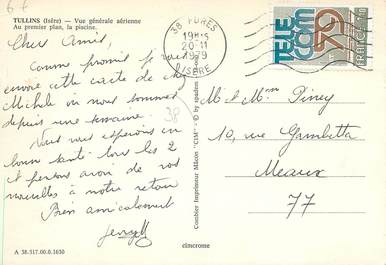 TULLINS (Isère) - Vue générale aérienne
Au premier plan, la piscine.
Chers Amis,
Comme promis je vous
envoie cette carte de chez
Michèle où nous sommes
depuis une semaine
Nous vous espérons en
bonne santé tous les 2
et pensons avoir de vos
nouvelles à notre retour
Bien amicalement
A 38.517.00.0.1650
Combier Imprimeur Mâcon "CIM"
cimcrome
38 FURES
20-11
1979
ISERE
TELE
COM
79
FRANCE
38
M et Mme Piney
10, rue Gambetta
Meaux
77